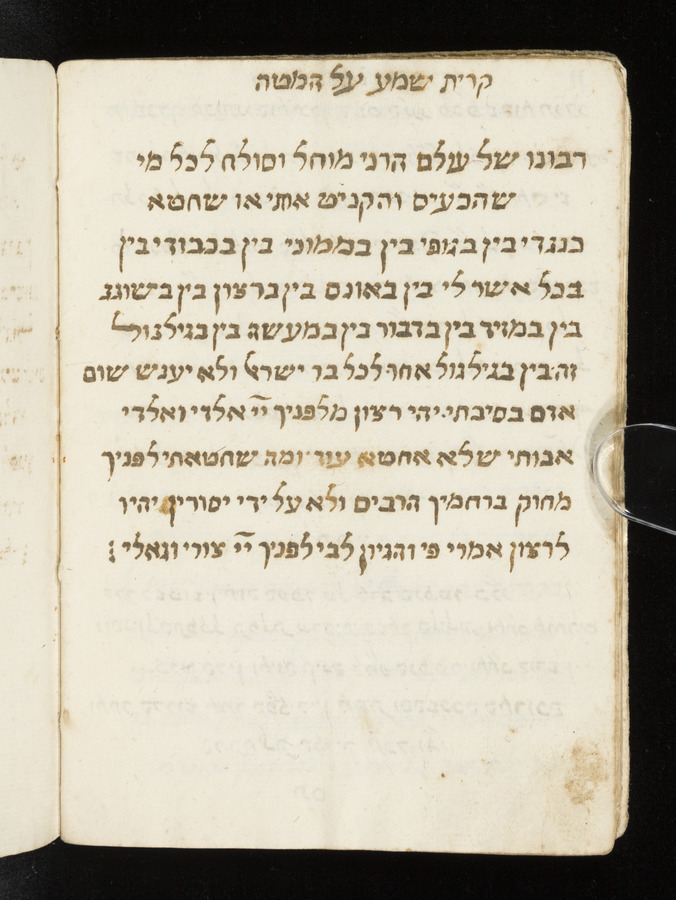 קרית שמע על המטה
רבונו של עולם הרני מוחל וסולח לכל מי
שהכעיס והקניט אתי או שחטא
כנגדי בין בגופי בין בממוני בין בכבודי בין
בכל אשר לי בין באונס בין ברצון בין בשוגג
בין במזיד בין בדבור בין במעשה בין בגילגול
זה בין בגילגול אחר לכל בר ישראל ולא יענש שום
אדם בסיבתי יהי רצון מלפניך יי אלדי ואלדי
אבותי שלא אחטא עוד ומה שחטאתי לפניך
מחוק ברחמיך הרבים ולא על ידי יסורין יהיו
לרצון אמרי פי והגיון לבי לפניך יי צורי וגאלי :